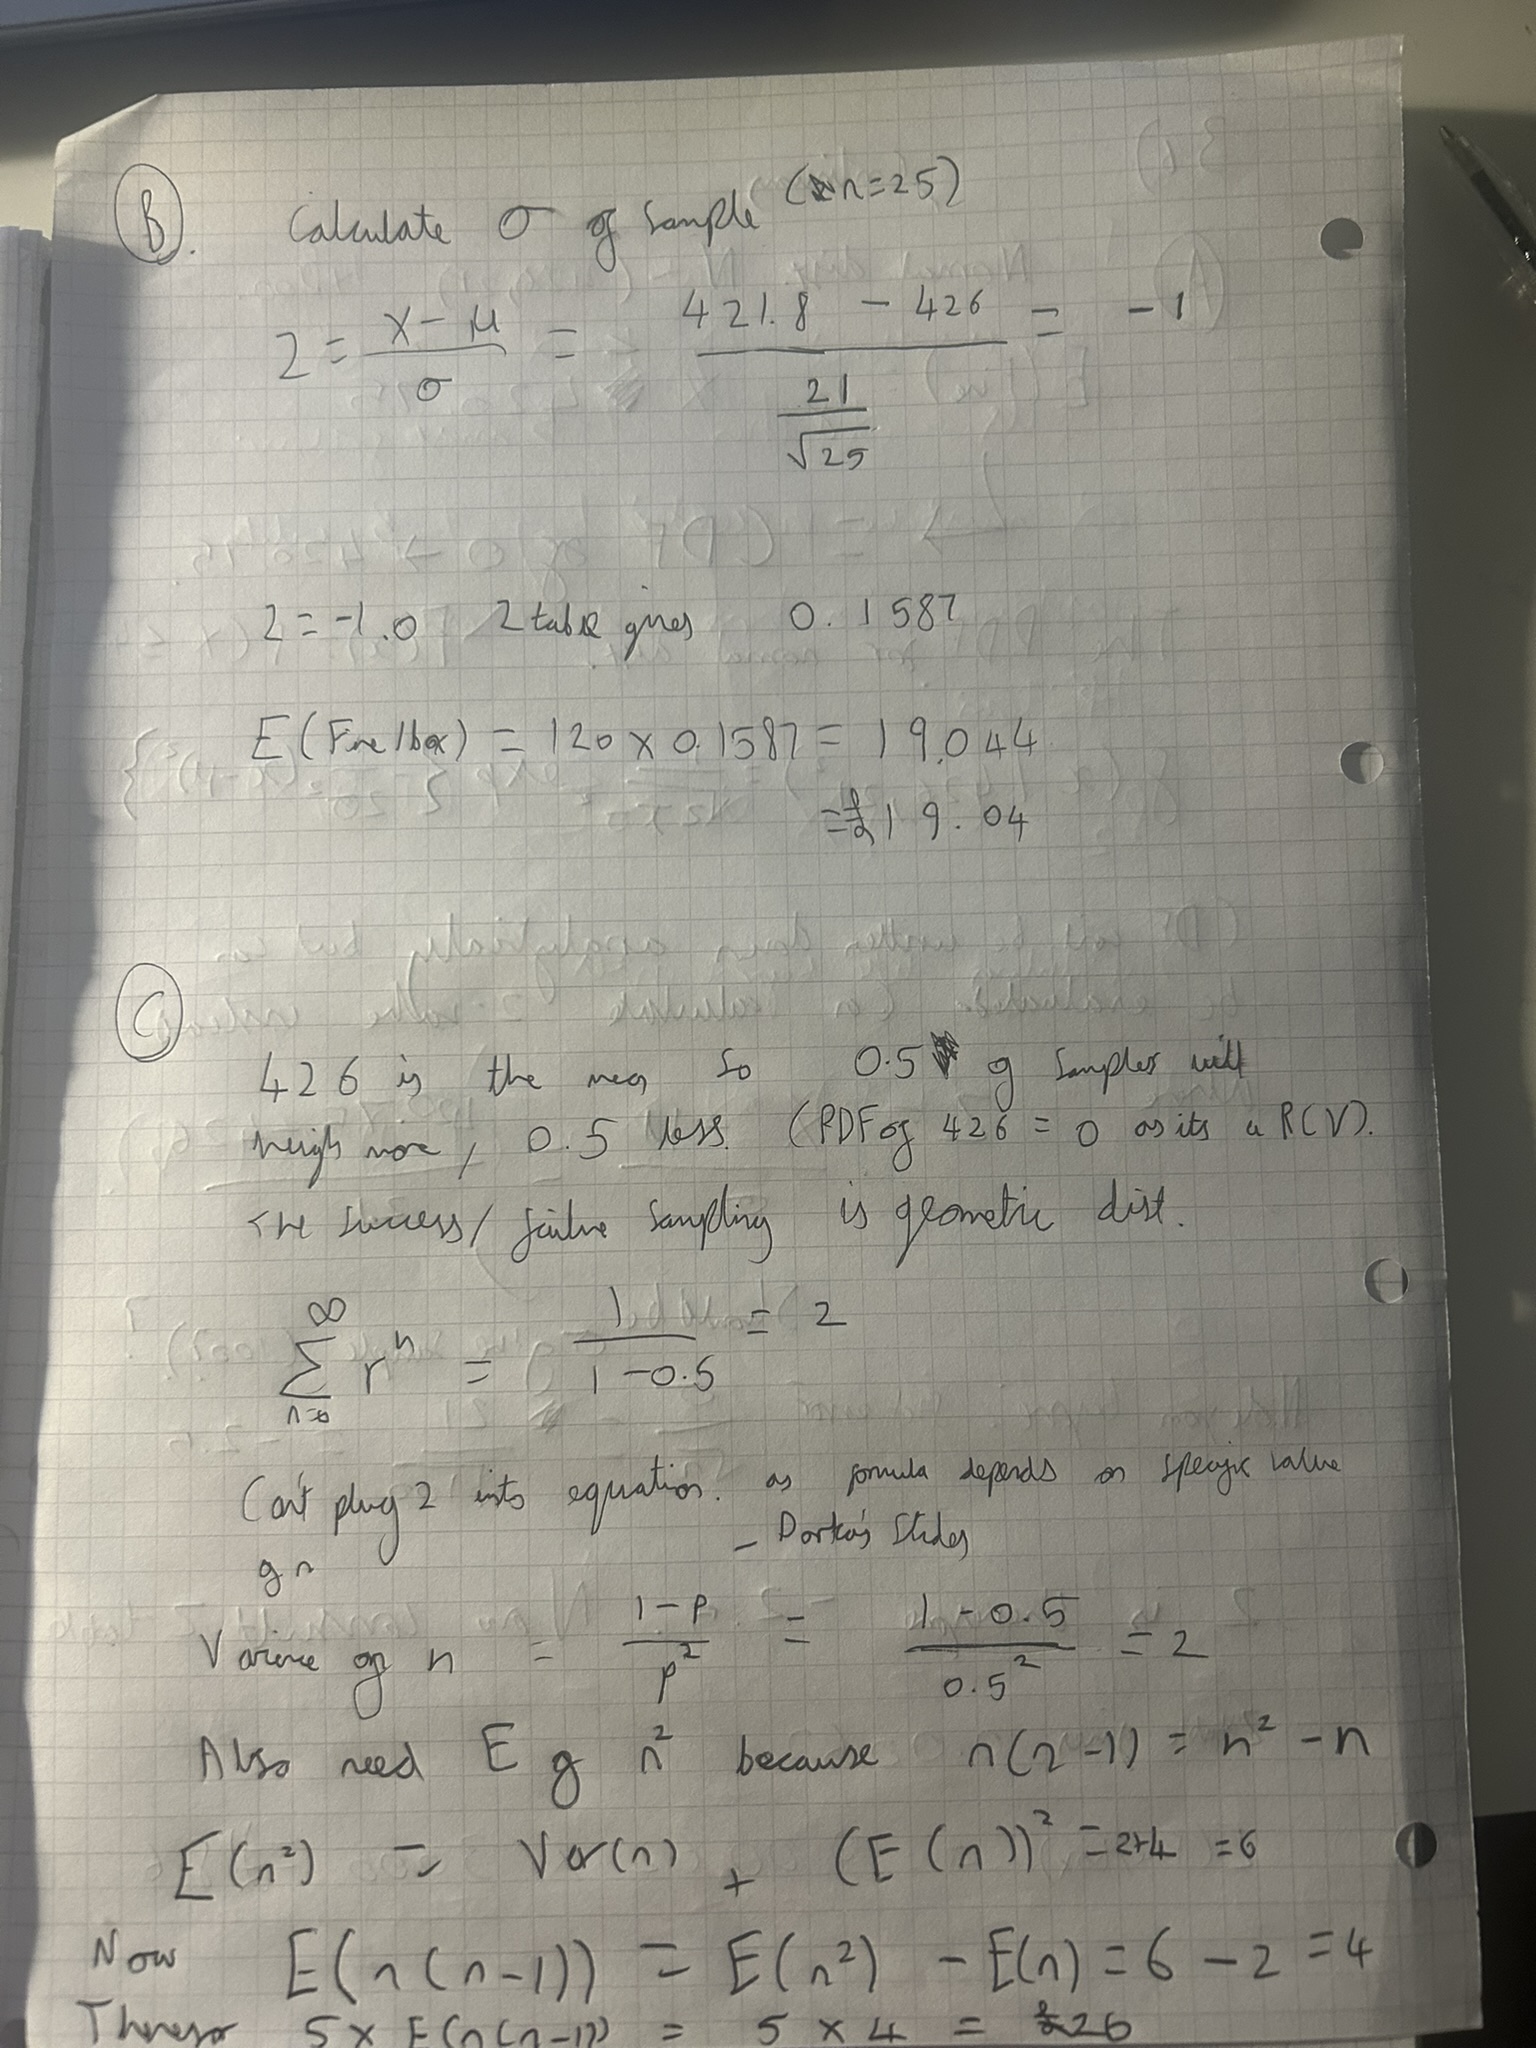 B. Calculate σ of Sample (n=25)
Z = X-μ / σ = 421.8 - 426 / 21/√25 = -1
Z = -1.0 Z table gives 0.1587
E (Fine/box) = 120 x 0.1587 = 19.044
= £19.04
C
426 is the mean so 0.5 of samples will
weigh more, 0.5 less. (PDF of 426 = 0 as its a RCV).
The success/failure sampling is geometric dist.
∞∑n=0 rⁿ = 1 / 1-0.5 = 2
Can't plug 2 into equation. as formula depends on specific value
of n - Darko's Slides
Variance of n = 1-p / p² = 1-0.5 / 0.5² = 2
Also need E of n² because n(n-1) = n² - n
E(n²) = Var(n) + (E(n))² = 2+4 = 6
Now E(n(n-1)) = E(n²) - E(n) = 6 - 2 = 4
5 x E(n(n-1)) = 5 x 4 = £20